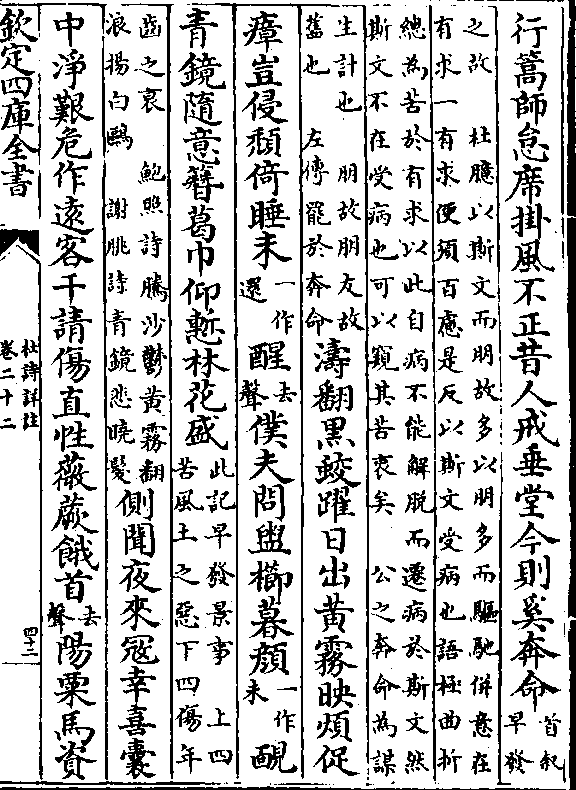 行篙師怠席掛風不正昔人戒垂堂今則奚奔命首叙早發
之故　杜臆以斯文而朋故多以朋多而驅馳併意在
有求一有求便須百慮是反以斯文受病也語極曲折
總為苦於有求以此自病不能解脱而遷病於斯文然
斯文不在受病也可以窺其苦衷矣　公之奔命為謀
生計也　朋故朋友故
舊也　左傳罷於奔命
濤翻黑蛟躍日出黄霧映煩促
瘴豈侵頽倚睡未一作還醒去聲僕夫問盥櫛暮顔一作未靦
青鏡隨意簪葛巾仰慙林花盛此記早發景事　上四苦風土之惡下四傷年
齒之衰　鮑照詩騰沙鬱黄霧翻
浪揚白鷗　謝朓詩青鏡悲曉髮
側聞夜來寇幸喜囊
中淨艱危作遠客干請傷直性薇蕨餓首去聲陽粟馬資
欽定四庫全書
杜詩詳註
卷二十二
四十二